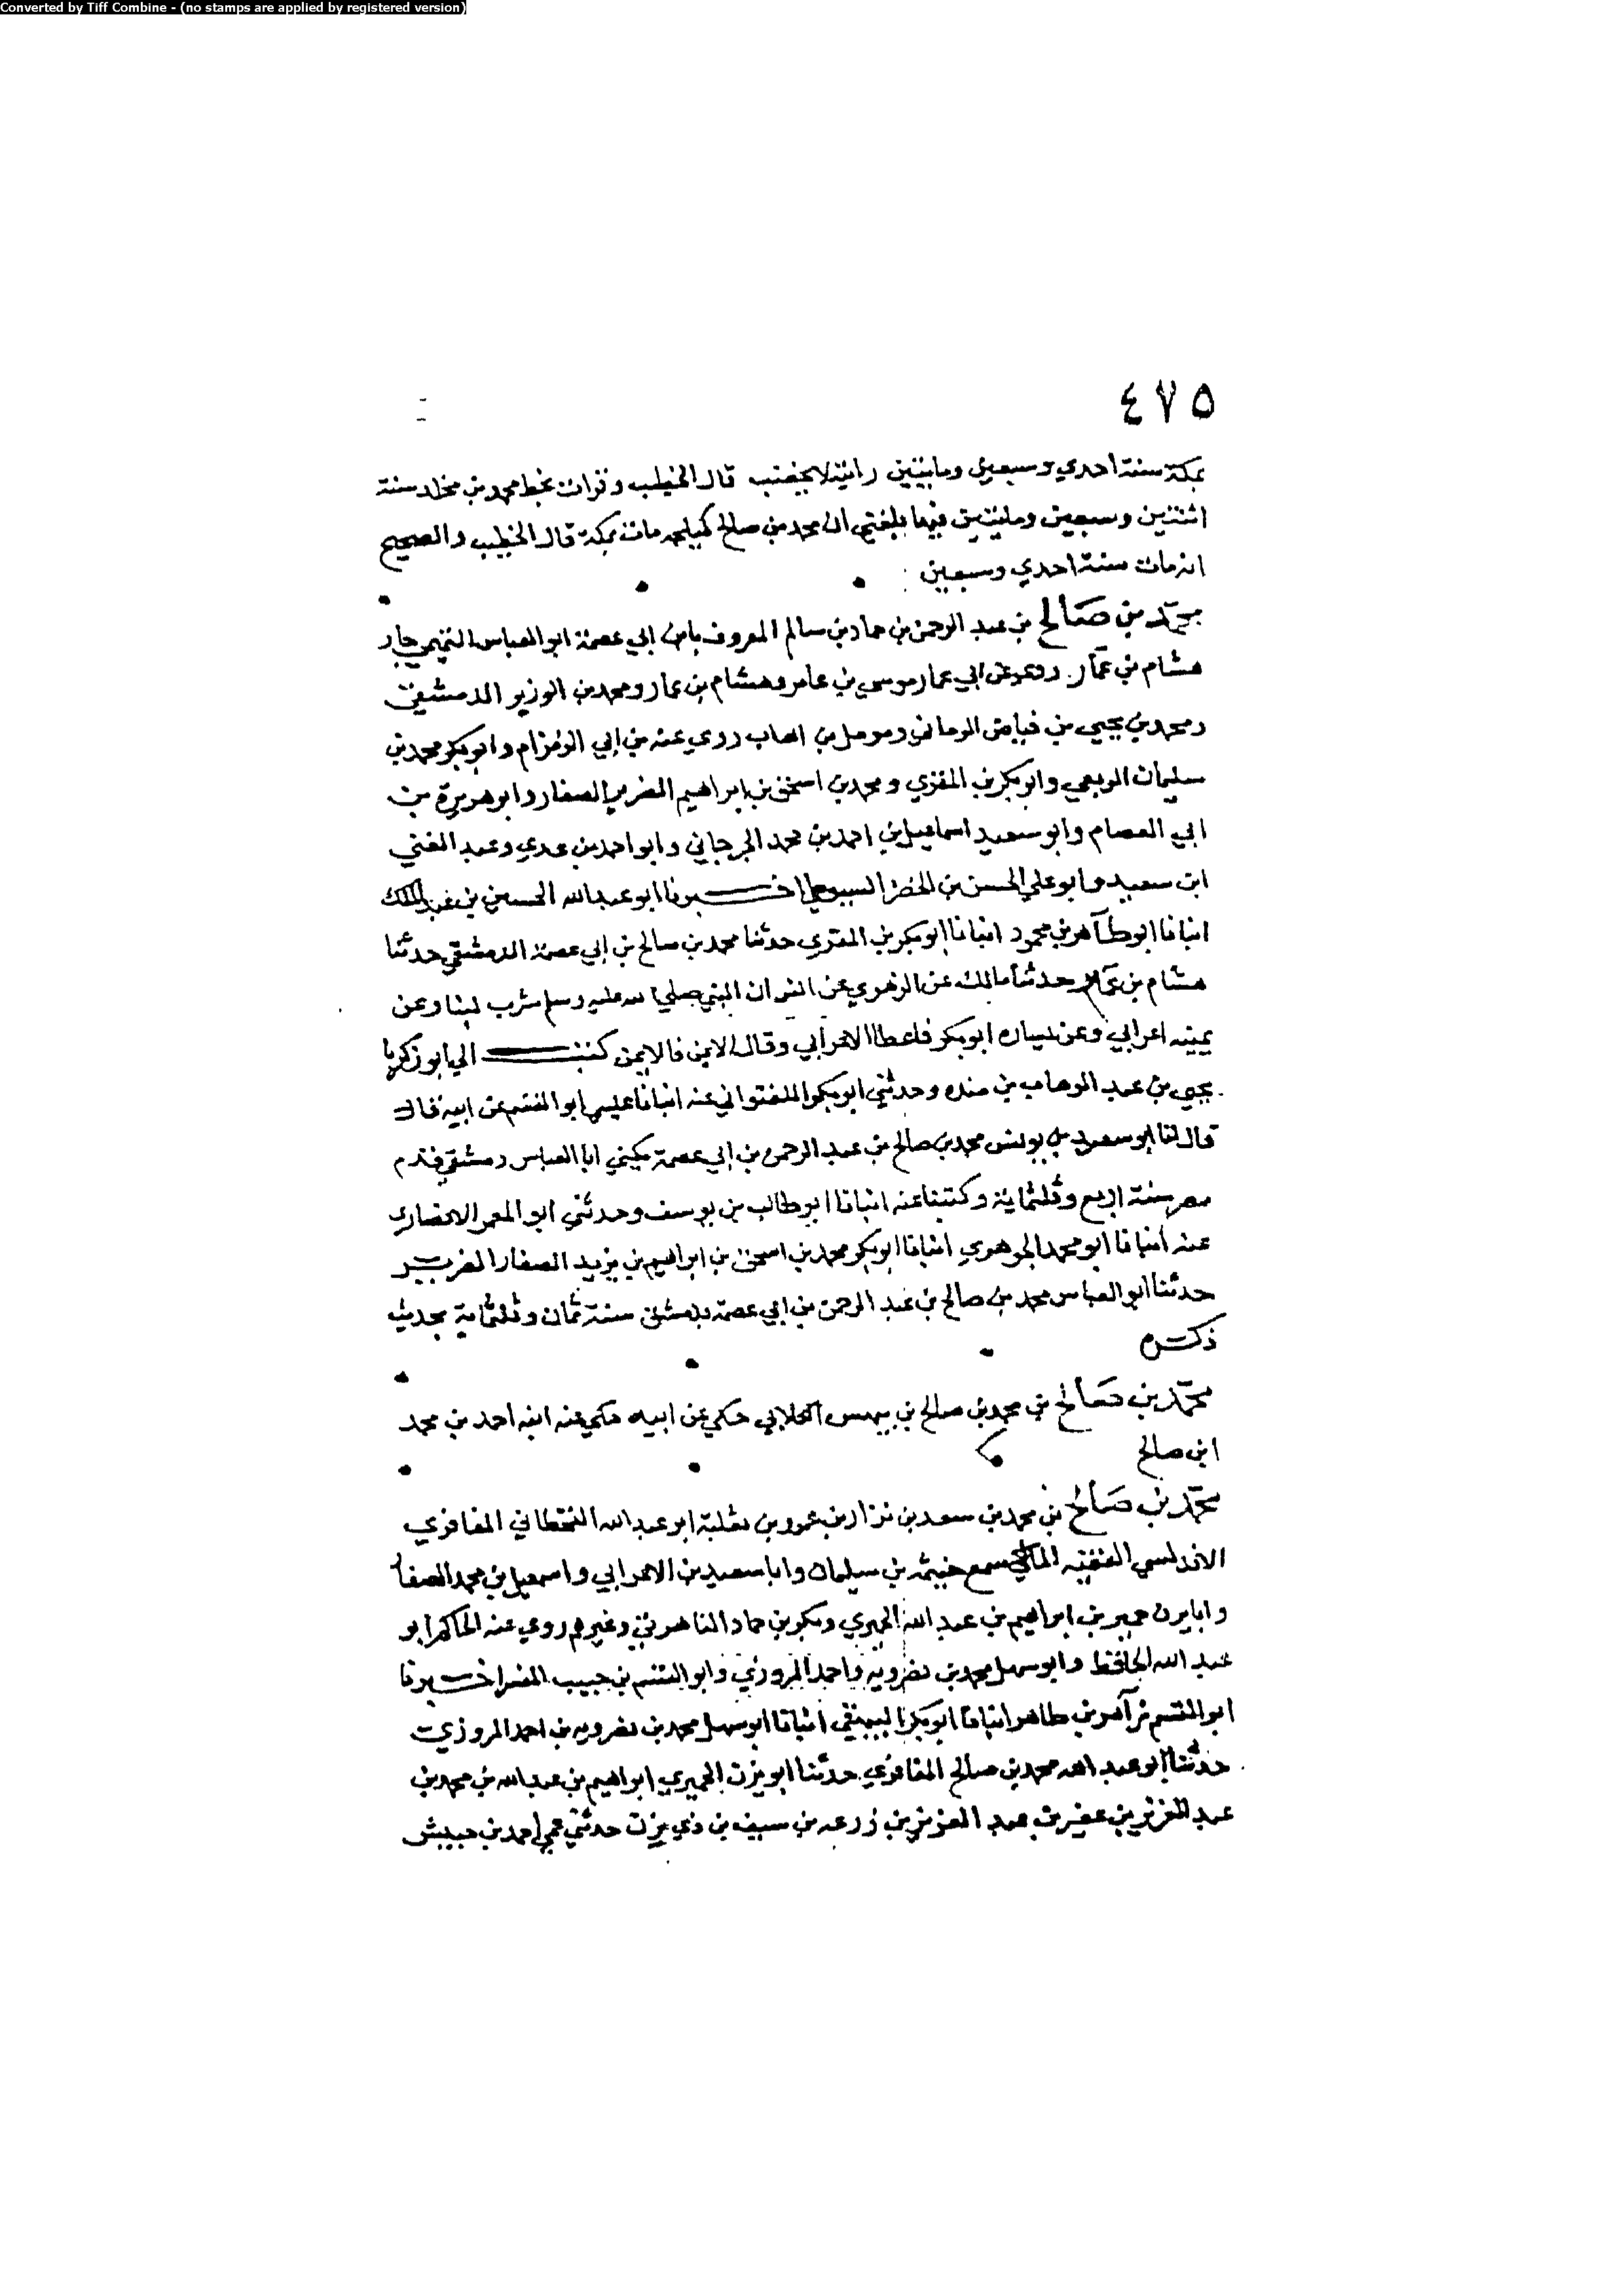 Converted by Tiff Combine - (no stamps are applied by registered version)
٤٧٥
بمكة سنة احدي وسبعين ومايتين رايته لا يخضب قال الخطيب وقرات بخط محمد بن مخلد سنة
اثنتين وسبعين ومايتين فيها بلغني ان محمد بن صالح كيلجه مات بمكة قال الخطيب والصحيح
انه مات سنة احدي وسبعين
محمد بن صالح بن عبد الرحمن بن حماد بن سالم المعروف بابن ابي عصمة ابو العباس التميمي جار
هشام بن عمار روي عن ابي عمار موسي بن عامر وهشام بن عمار ومحمد بن الوزير الدمشقي
ومحمد بن يحيي بن فياض الزماني ومومل بن اهاب روي عنه بن ابي الزمزام وابو بكر محمد بن
سليمان الربعي وابو بكر بن المقري ومحمد بن اسحق بن ابراهيم الصفار وابو هريرة بن
ابي العصام وابو سعيد اسماعيل بن احمد بن محمد الجرجاني وابو احمد بن عدي وعبد الغني
ابن سعيد وابو علي الحسن بن الخضر السيوطي اخبرنا ابو عبد الله الحسين بن عبد الملك
انبانا ابو طاهر بن محمود انبانا ابو بكر بن المقري حدثنا محمد بن صالح بن ابي عصمة الدمشقي حدثنا
هشام بن عمار حدثنا مالك عن الزهري عن انس ان النبي صلي الله عليه وسلم شرب لبنا وعن
يمينه اعرابي وعن يساره ابو بكر فاعطا الاعرابي وقال الايمن فالايمن كتب الي ابو زكريا
يحيي بن عبد الوهاب بن منده وحدثني ابو بكر اللفتواني عنه انبانا عمي ابو القسم عن ابيه قال
قال لنا ابو سعيد بن يونس محمد بن صالح بن عبد الرحمن بن ابي عصمة يكني ابا العباس دمشقي قدم
مصر سنة اربع وثلثماية وكتبنا عنه انبانا ابو طالب بن يوسف وحدثني ابو المعمر الانصاري
عنه انبانا ابو محمد الجوهري انبانا ابو بكر محمد بن اسحق بن ابراهيم بن يزيد الصفار
حدثنا ابو العباس محمد بن صالح بن عبد الرحمن بن ابي عصمة بدمشق سنة ثمان وثلثماية بحديث
ذكره
محمد بن صالح بن محمد بن صالح بن بيهس الكلابي حكي عن ابيه حكي عنه ابنه احمد بن محمد
ابن صالح
محمد بن صالح بن محمد بن سعد بن نزار بن عمرو بن ثعلبة ابو عبد الله القحطاني المعافري
الاندلسي الفقيه المالكي سمع خيثمه بن سليمان وابا سعيد بن الاعرابي واسمعيل بن محمد الصفار
وابا يزن حمير بن ابراهيم بن عبد الله الحميري وبكر بن حماد التاهرتي وغيرهم روي عنه الحاكم ابو
عبد الله الحافظ وابو سهل محمد بن نصرويه واحمد المروزي وابو القسم بن حبيب المفسر اخبرنا
ابو القسم زاهر بن طاهر انبانا ابو بكر البيهقي انبانا ابو سهل محمد بن نصرويه بن احمد المروزي
حدثنا ابو عبد الله محمد بن صالح المعافري حدثنا ابو يزن الحميري ابراهيم بن عبد الله بن محمد بن
عبد العزيز بن عفير بن عبد العزيز بن زرعه بن سيف بن ذي يزن حدثني عمي احمد بن حبيش